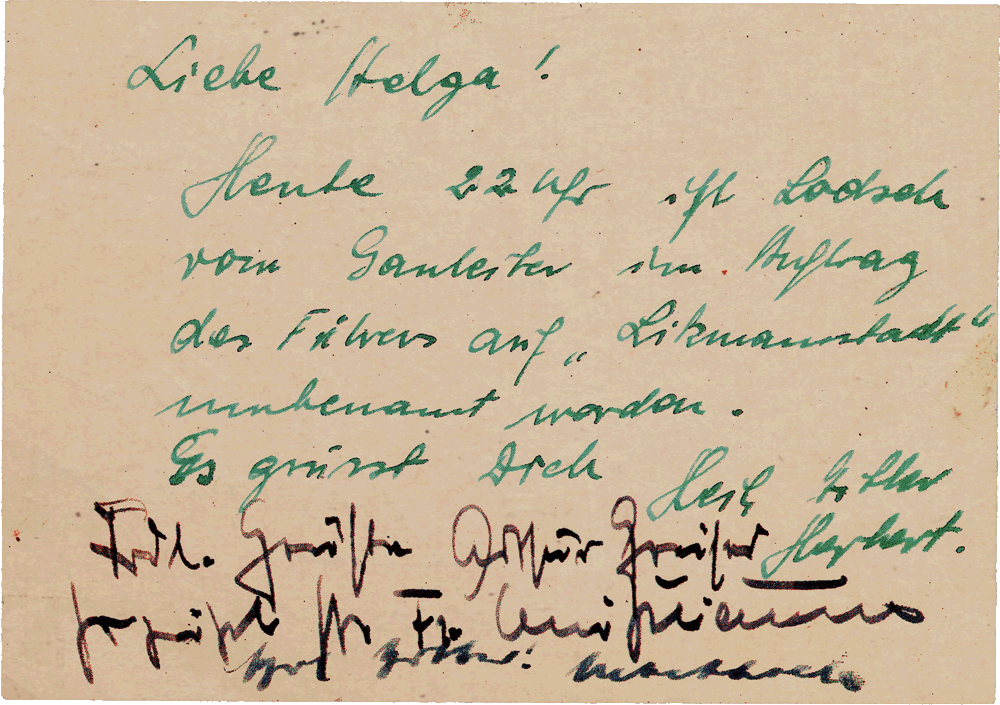 Liebe Helga!
Heute 22 Uhr ist Lodsch
vom Gauleiter im Auftrag
des Führers auf „Litzmannstadt“
umbenannt worden.
Es grüsst Dich Heil Hitler
Herbert.
Frdl. Grüße Arthur Greiser
Heil Hitler!